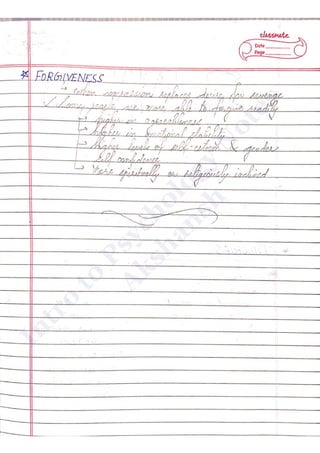 classmate
Date
Page
* FORGIVENESS
→ when compassion replaces desire for revenge
✓ Some people are more able to forgive readily
→ higher in agreeableness
→ higher in emotional stability
→ higher levels of self-esteem & gender
self confidence
→ more spiritually or religiously inclined
Intro to Psychology Notes
Akshansh